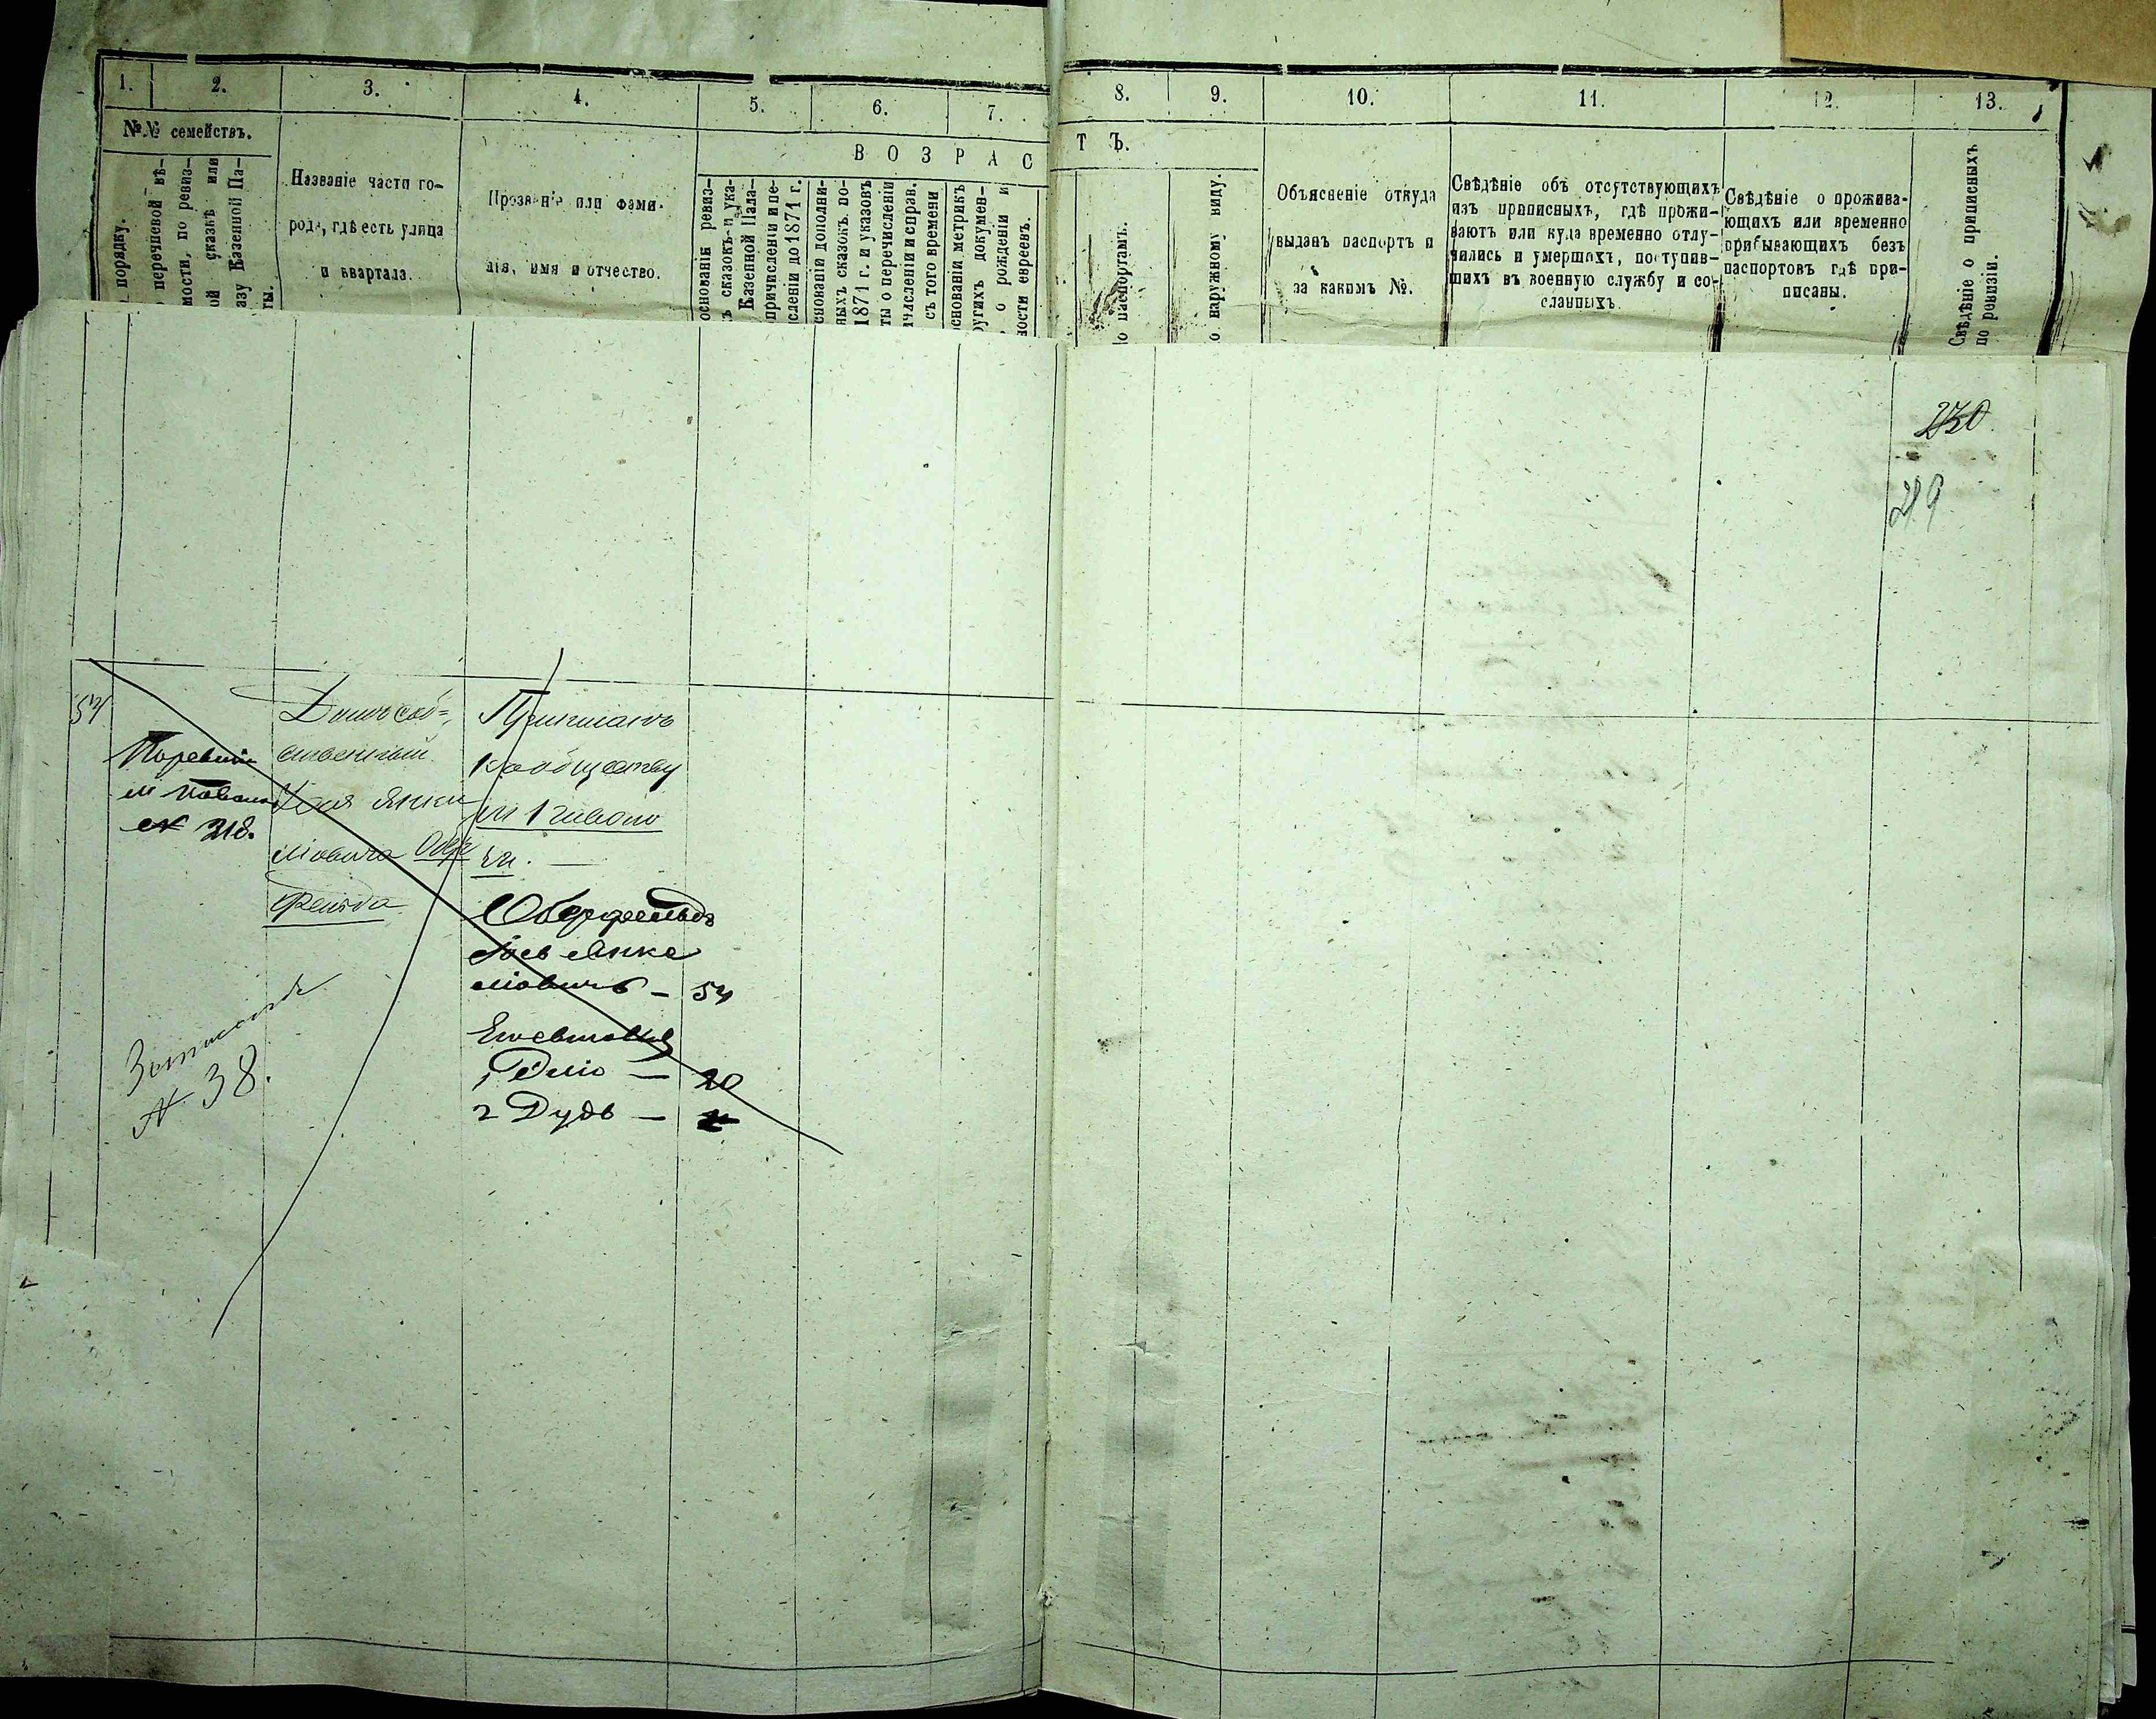 1. 2. 3. 4. 5. 6. 7. 8. 9. 10. 11. 12. 13.
№№ семействъ.
порядку.
перечневой вѣ-
мости, по ревиз-
ой сказкѣ или
азу Казенной Па-
ты.
Названіе части го-
рода, гдѣ есть улица
и квартала.
Прозваніе или фами-
лія, имя и отчество.
ВОЗРАС
ТЪ.
основаніи ревиз-
ъ сказокъ и ука-
Казенной Пала-
причисленіи и пе-
исленіи до 1871 г.
снованіи дополни-
ныхъ сказокъ по-
1871 г. и указовъ
ты о перечисленіи
ичисленіи и справ.
съ того времени
снованіи метрикъ
ругихъ докумен-
о рожденіи и
ности евреевъ.
о паспортамъ.
о наружному виду.
Объясненіе откуда
выданъ паспортъ и
за какимъ №.
Свѣдѣніе объ отсутствующихъ
изъ приписныхъ, гдѣ прожи-
ваютъ или куда временно отлу-
чились и умершихъ, поступив-
шихъ въ военную службу и со-
сланныхъ.
Свѣдѣніе о прожива-
ющихъ или временно
прибывающихъ безъ
паспортовъ гдѣ при-
писаны.
Свѣдѣніе о приписныхъ
по ревизіи.
230
219
54
По ревизіи
№ 218.
Домъ соб=
ственный
Янке
ліовича Обер
фельда
къ обществу
м
чи.
Оберфельдъ
Янке
ліовичъ – 54
Его сыновья
1 – 20
2 Дудь –
Записанъ
№ 38.